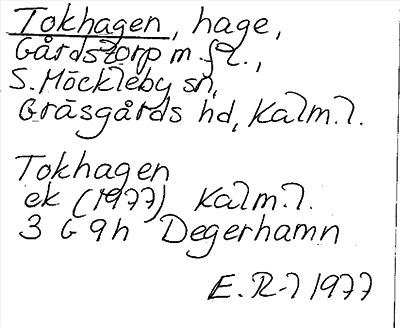 Tokhagen, hage,
Gårdstorp m.fl.,
S. Möckleby sn,
Gräsgårds hd, Kalm. l.
Tokhagen
ek (1977) Kalm. l.
3 G 9h Degerhamn
E. R-l 1977